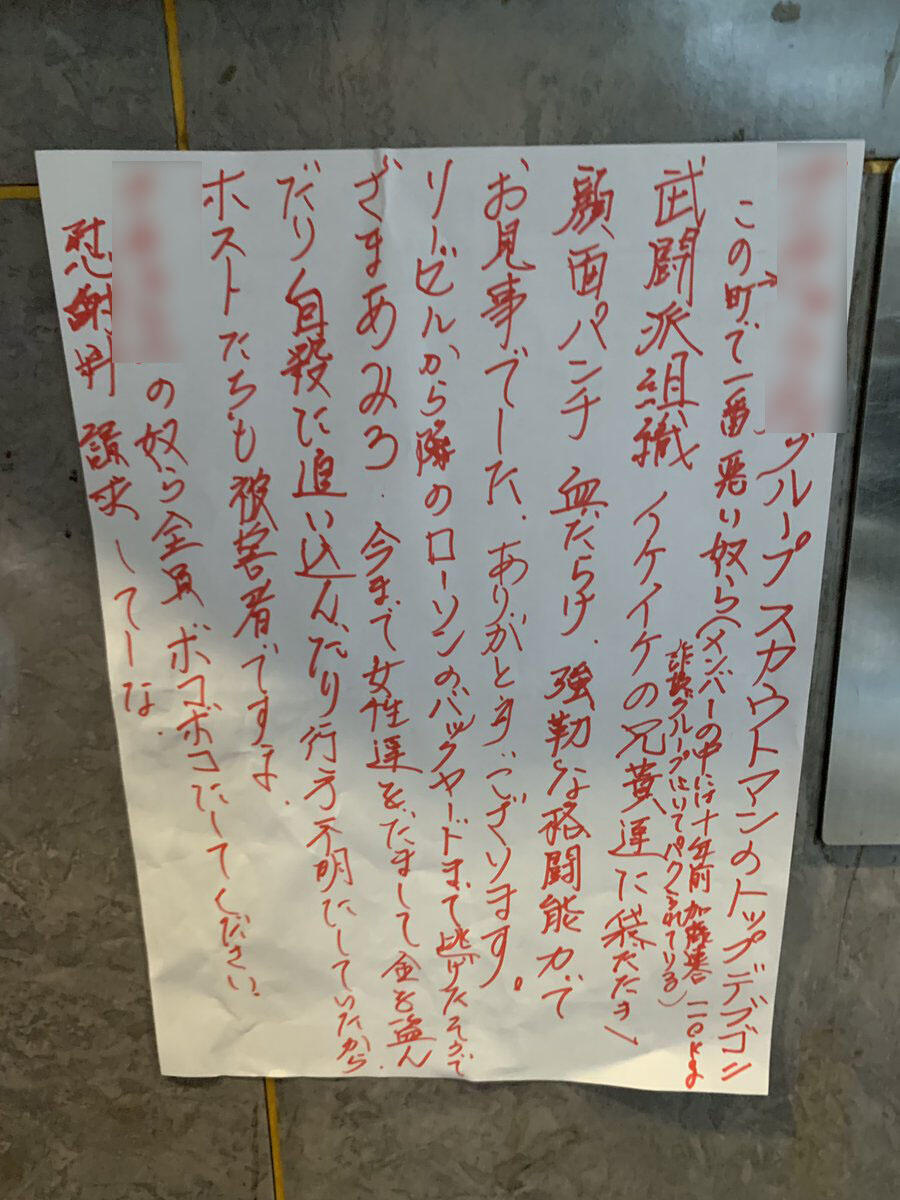 グループスカウトマンのトップデブゴン
この町で一番悪い奴ら(メンバーの中には十年前加藤蓮 一一〇kg
詐欺グループにいてパクられている)
武闘派組織イケイケの兄貴達に袋だたき
顔面パンチ血だらけ、強靭な格闘能力で
お見事でした、ありがとうございます。
リービルから隣のローソンのバックヤードまで逃げたそうで
ざまあみろ、今まで女性達をだまして金を盗ん
だり自殺に追い込んだり行方不明にしていたから
ホストたちも被害者ですよ、
の奴ら全員ボコボコにしてください、
慰謝料請求してーな、